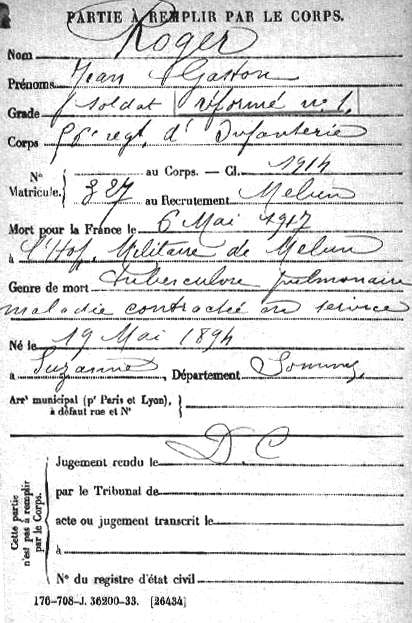 PARTIE À REMPLIR PAR LE CORPS.
Nom Roger
Prénoms Jean Gaston
Grade soldat réformé n° 1.
Corps regt. d'Infanterie
N° au Corps. — Cl. 1914
Matricule. 327 au Recrutement Melun
Mort pour la France le 6 Mai 1917
à l'Hop. Militaire de Melun
Genre de mort Tuberculose pulmonaire
maladie contractée en service
Né le 19 Mai 1894
à Suzanne, Département Somme
Arrt municipal (pr Paris et Lyon), à défaut rue et N°
D. C
Jugement rendu le
par le Tribunal de
acte ou jugement transcrit le
à
N° du registre d'état civil
Cette partie n'est pas à remplir par le Corps.
176-708-J. 36200-33. [26434]